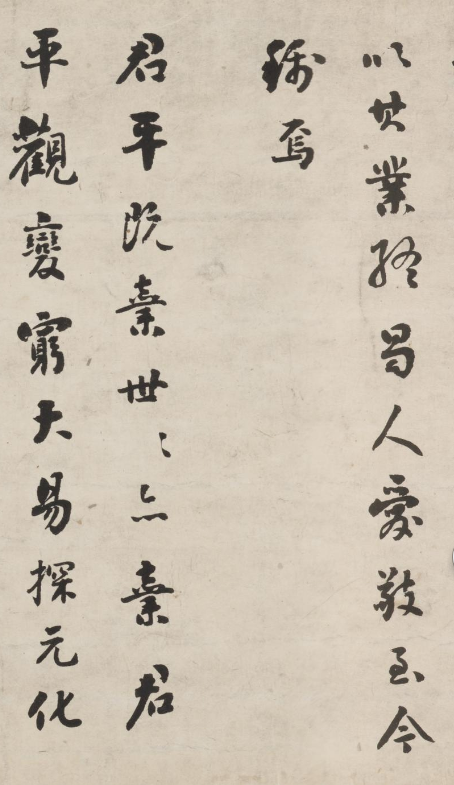 以其業終蜀人愛敬至今
稱焉
君平既棄世〻亦棄君
平觀變窮大易探元化